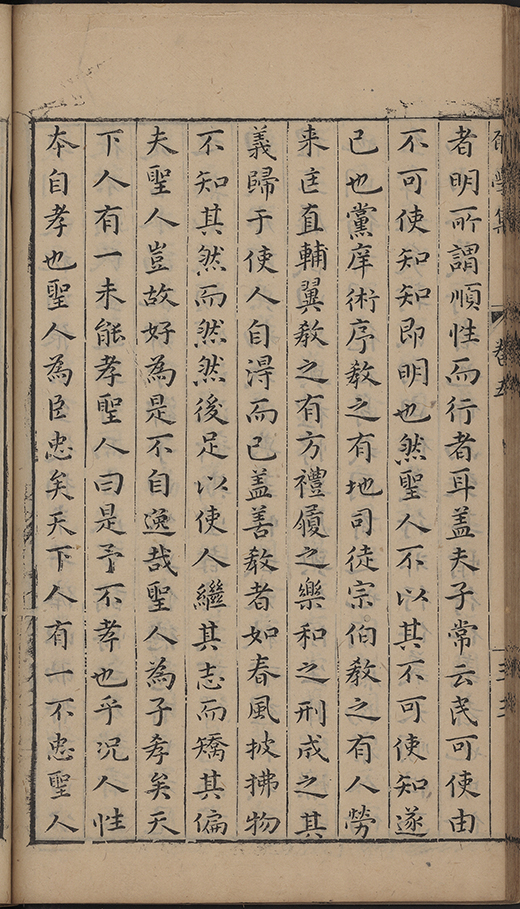 者明所謂順性而行者耳盖夫子常云民可使由
不可使知知即明也然聖人不以其不可使知遂
已也黨庠術序教之有地司徒宗伯教之有人勞
来匡直輔翼教之有方禮履之樂和之刑成之其
義歸于使人自淂而已盖善教者如春風披拂物
不知其然而然然後足以使人繼其志而矯其偏
夫聖人豈故好為是不自逸哉聖人為子孝矣天
下人有一未能孝聖人曰是予不孝也乎况人性
本自孝也聖人為臣忠矣天下人有一不忠聖人